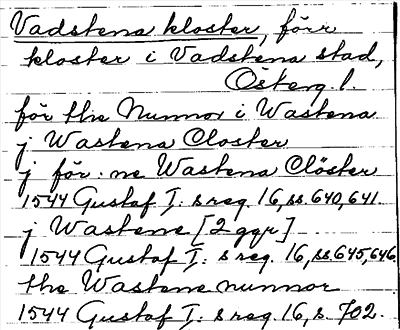 Vadstena kloster, förr
kloster i Vadstena stad,
Österg. l.
för the Nunnor i Wastena
j Wastena Closter
j för:ne Wastena Clöster
1544 Gustaf I:s reg. 16, ss. 640, 641.
j Wastene [2 ggr]
1544 Gustaf I:s reg. 16, ss. 645, 646.
the Wastene nunnor
1544 Gustaf I:s reg. 16, s. 702.